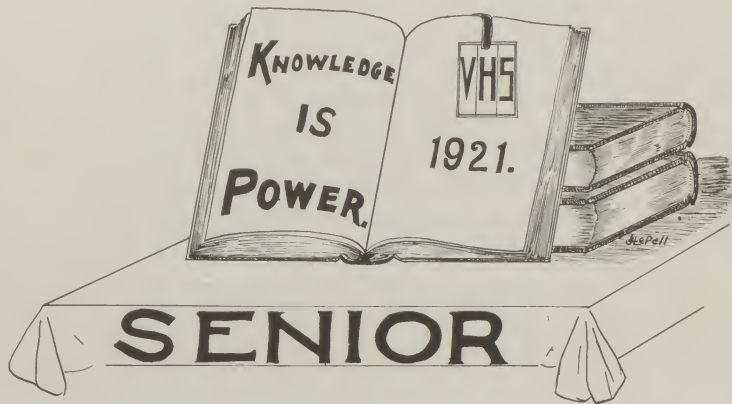 KNOWLEDGE
IS
POWER.
VHS
1921.
SENIOR